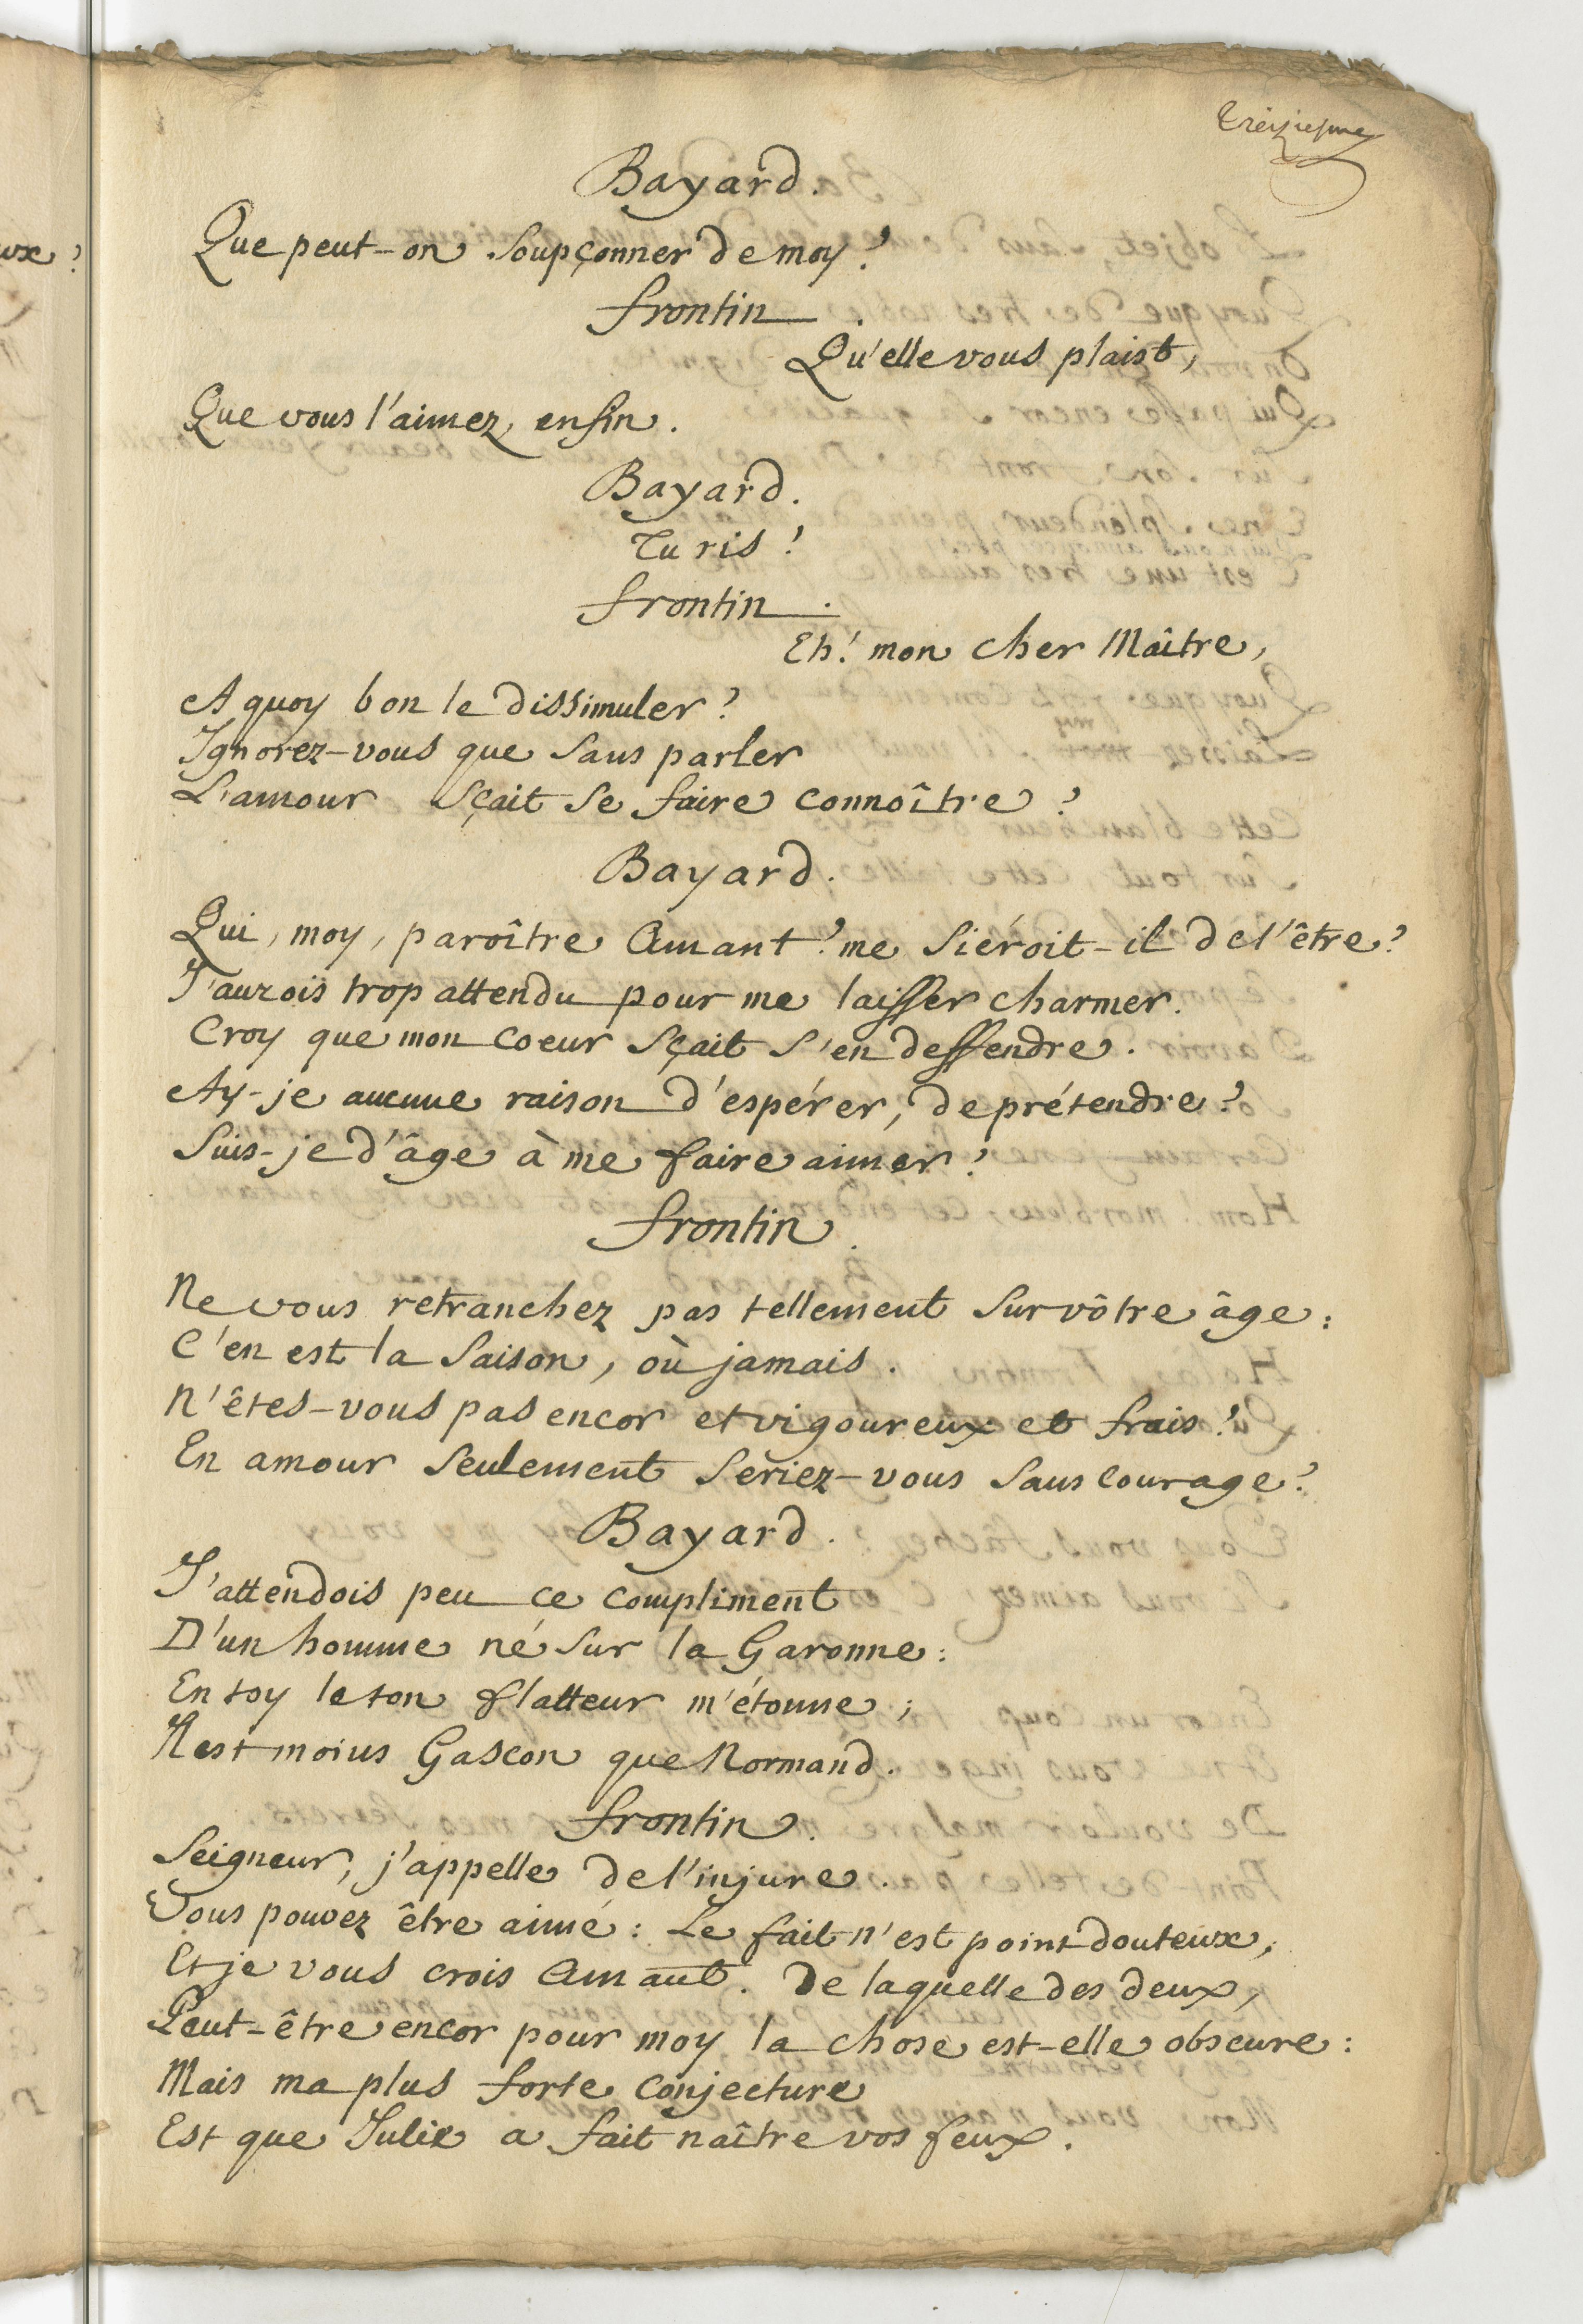 treiziesme
Bayard.
Que peut-on soupçonner de moy?
frontin.
Qu'elle vous plaist,
Que vous l'aimez enfin.
Bayard.
Tu ris!
frontin.
Eh! mon cher Maître,
A quoy bon le dissimuler?
Ignorez-vous que sans parler
L'amour sçait se faire connoître?
Bayard.
Qui, moy, paroître Amant? me siéroit-il de l'être?
J'aurois trop attendu pour me laisser charmer.
Croy que mon coeur sçait s'en deffendre.
Ay-je aucune raison d'espérer, de prétendre?
Suis-je d'âge à me faire aimer?
frontin.
Ne vous retranchez pas tellement sur vôtre âge:
C'en est la saison, où jamais.
N'êtes-vous pas encor et vigoureux et frais?
En amour seulement seriez-vous sans courage?
Bayard.
J'attendois peu ce compliment
D'un homme né sur la Garonne:
En toy le ton flatteur m'étonne;
Il est moins Gascon que Normand.
frontin.
Seigneur, j'appelle de l'injure.
Vous pouvez être aimé: Le fait n'est point douteux;
Et je vous crois Amant. De laquelle des deux,
Peut-être encor pour moy la chose est-elle obscure:
Mais ma plus forte conjecture
Est que Julie a fait naître vos feux.
ux?